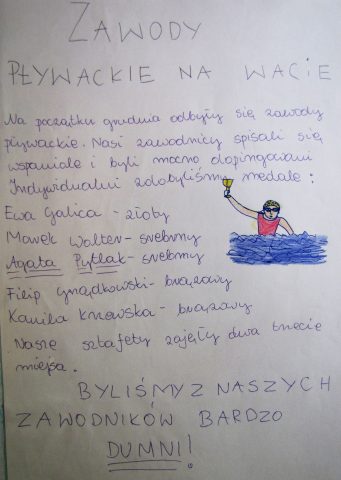 ZAWODY
PŁYWACKIE NA WACIE
Na początku grudnia odbyły się zawody
pływackie. Nasi zawodnicy spisali się
wspaniale i byli mocno dopingowani
Indywidualni zdobyliśmy medale:
Ewa Galica - złoty
Marek Wolter - srebrny
Agata Pytlak - srebrny
Filip - brązowy
Kamila - brązowy
Nasze sztafety zajęły dwa trzecie
miejsca.
BYLIŚMY Z NASZYCH
ZAWODNIKÓW BARDZO
DUMNI!